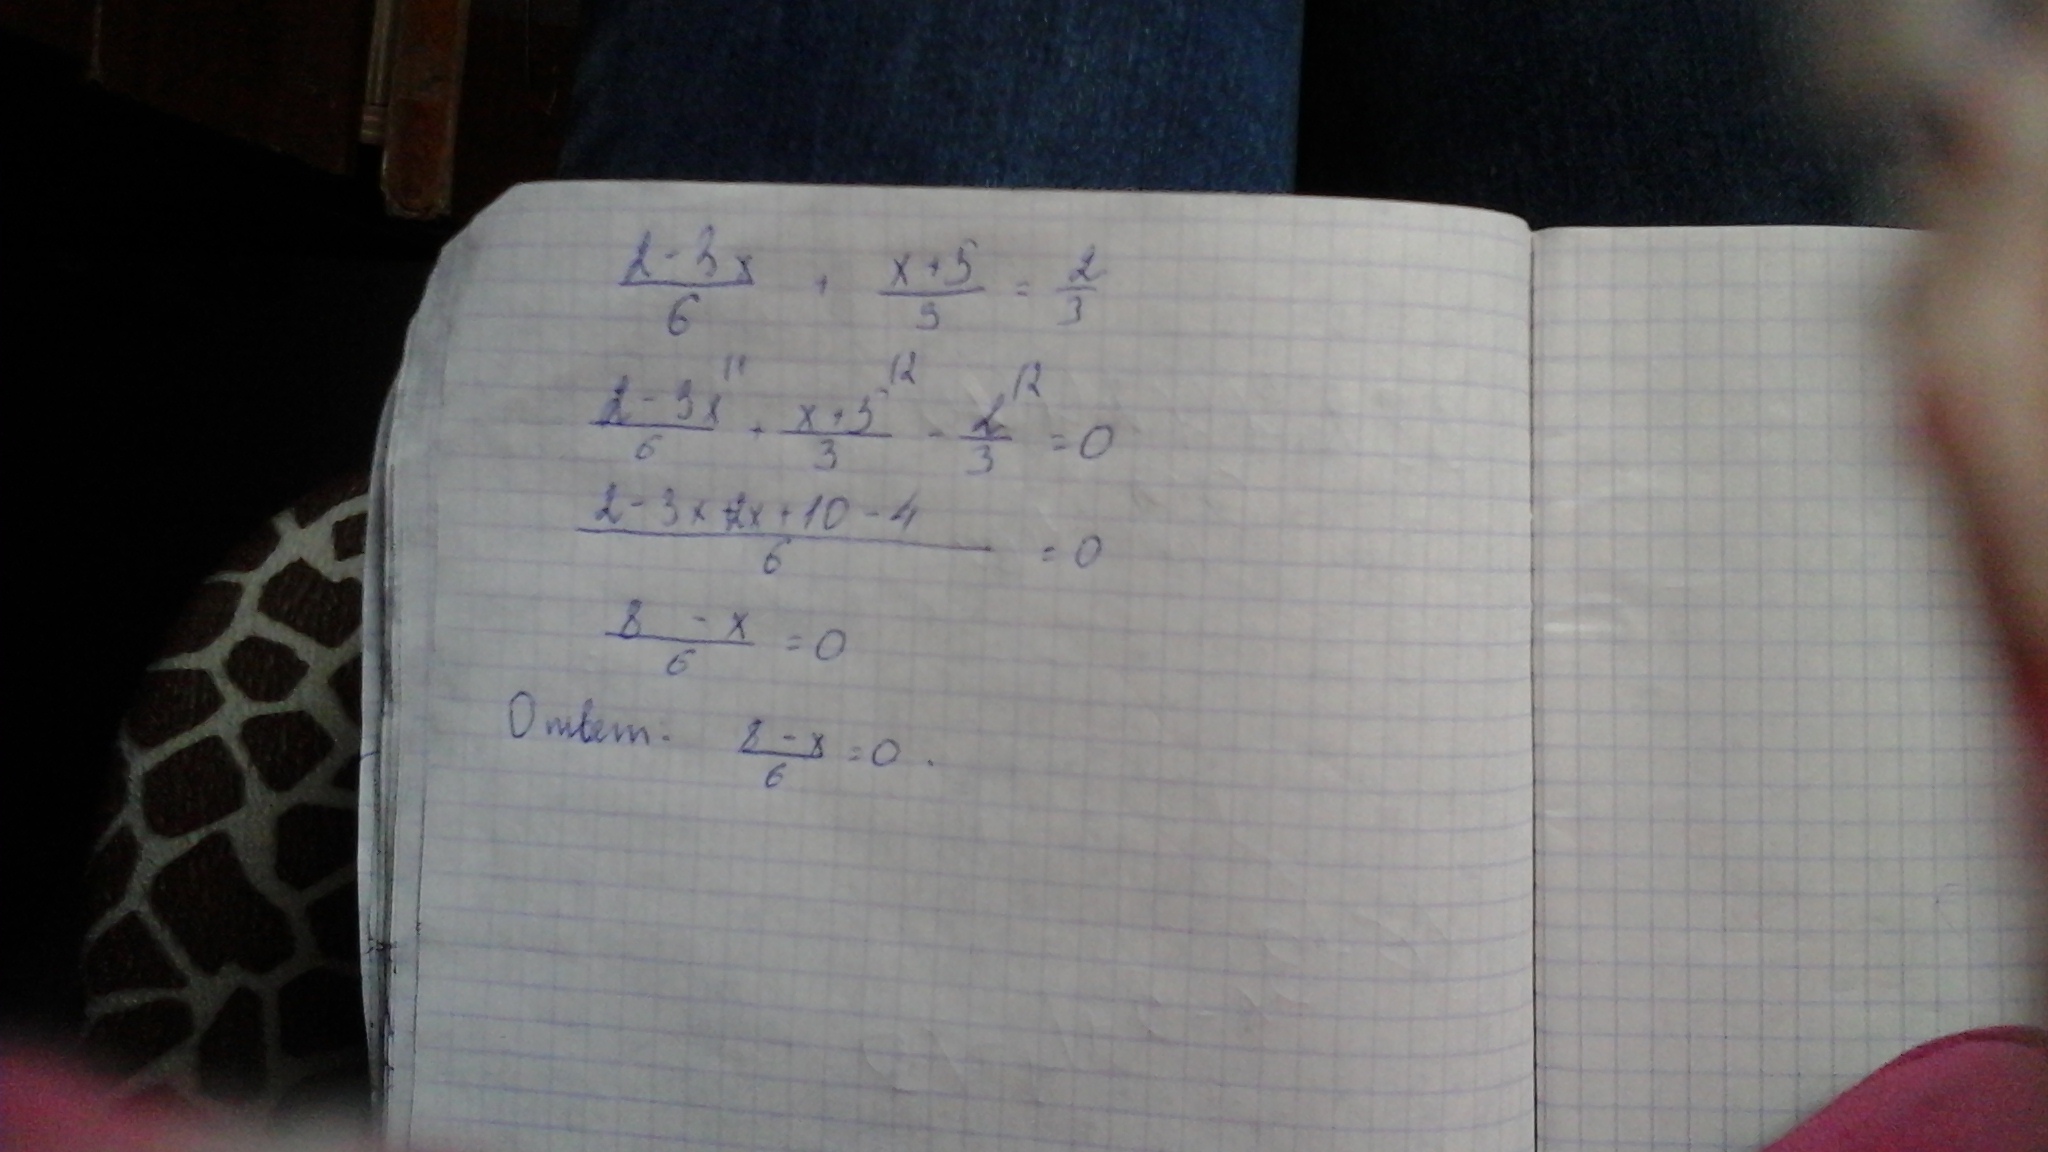 (2-3x)/6 + (x+5)/3 = 2/3
(2-3x)/6 + (x+5)/3 - 2/3 = 0
(2-3x+2x+10-4)/6 = 0
(8-x)/6 = 0
Ответ: (8-x)/6 = 0.